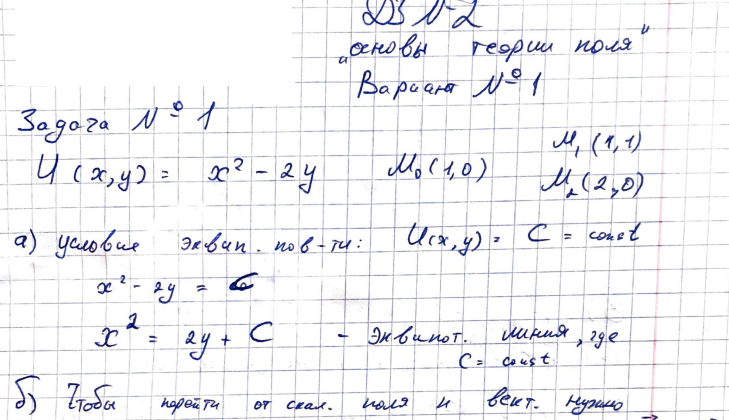 ДЗ №2
"основы теории поля"
Вариант №1
Задача №1
U(x,y) = x² - 2y M₀(1,0) M₁(1,1)
M₂(2,0)
а) условие эквип. пов-ти: U(x,y) = C = const
x² - 2y = C
x² = 2y + C - эквипот. линия, где
C = const
б) Чтобы перейти от скал. поля к вект. нужно